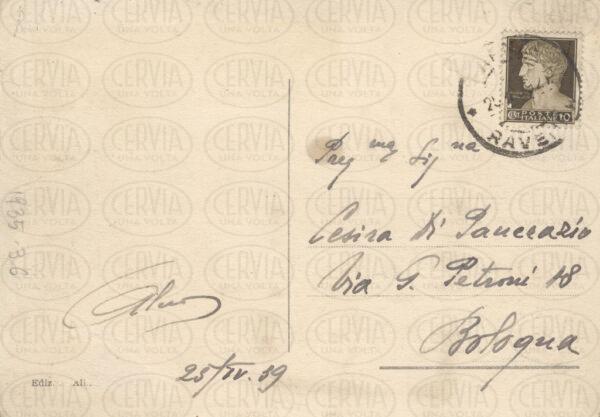 POSTE
ITALIANE
10
RAVE
Preg ma Sig na
Cesira Di Pancrazio
Via G. Petroni 18
Bologna
25/IV.39
Ediz. Ali..
1935-36
CERVIA
UNA VOLTA